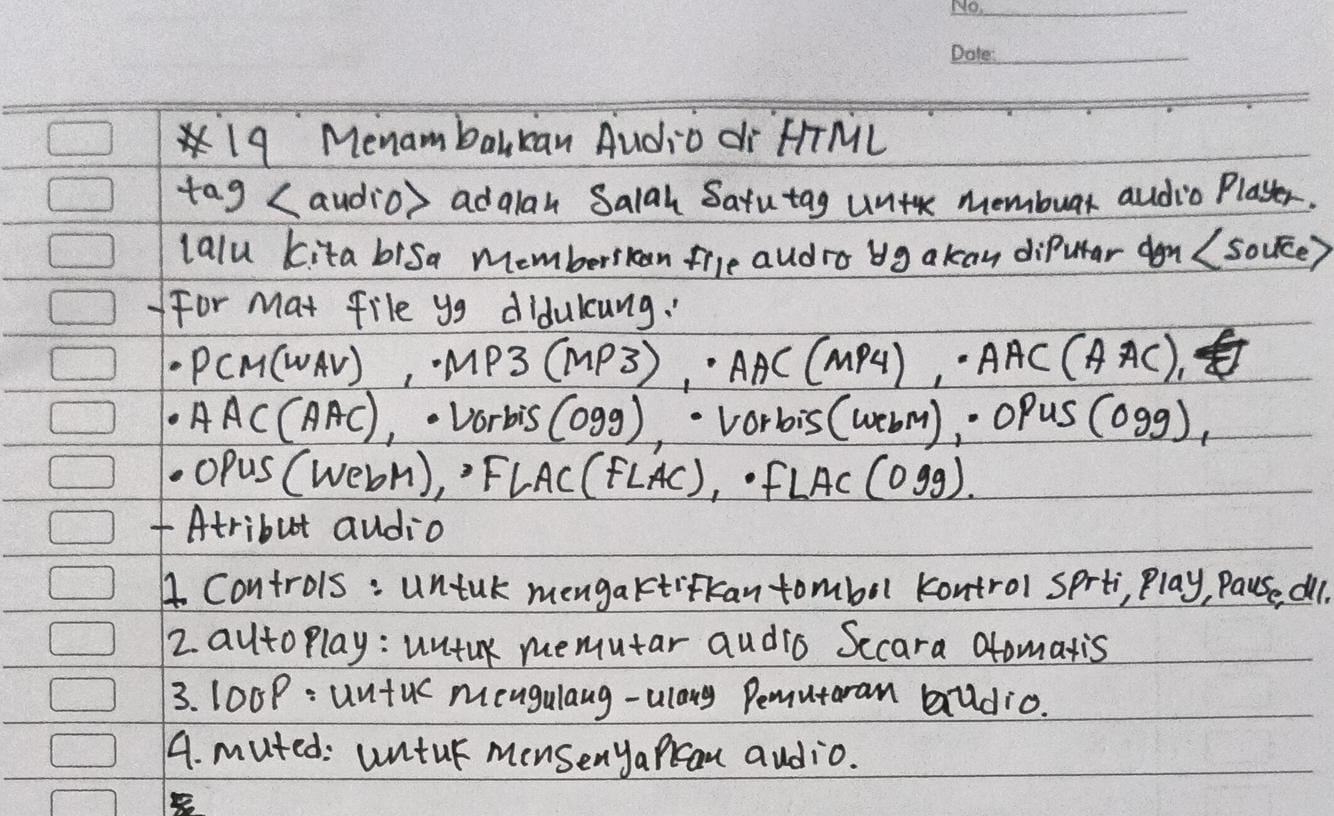 No.
Date:
#19 Menambahkan Audio di HTML
tag <audio> adalah Salah Satu tag untuk membuat audio Player.
lalu kita bisa memberikan file audio yg akan diputar dgn <source>
- For Mat file yg didukung:
• PCM(WAV) , • MP3 (MP3) , • AAC (MP4) , • AAC (AAC),
• AAC (AAC), • Vorbis (Ogg) , • Vorbis (WebM) , • OPUS (Ogg) ,
• OPUS (WebM), • FLAC (FLAC), • FLAC (Ogg).
- Atribut audio
1. Controls : untuk mengaktifkan tombol kontrol sprti, Play, Pause, dll.
2. autoPlay : untuk memutar audio Secara otomatis
3. loop : untuk mengulang-ulang Pemutaran audio.
4. muted: untuk mensenyapkan audio.